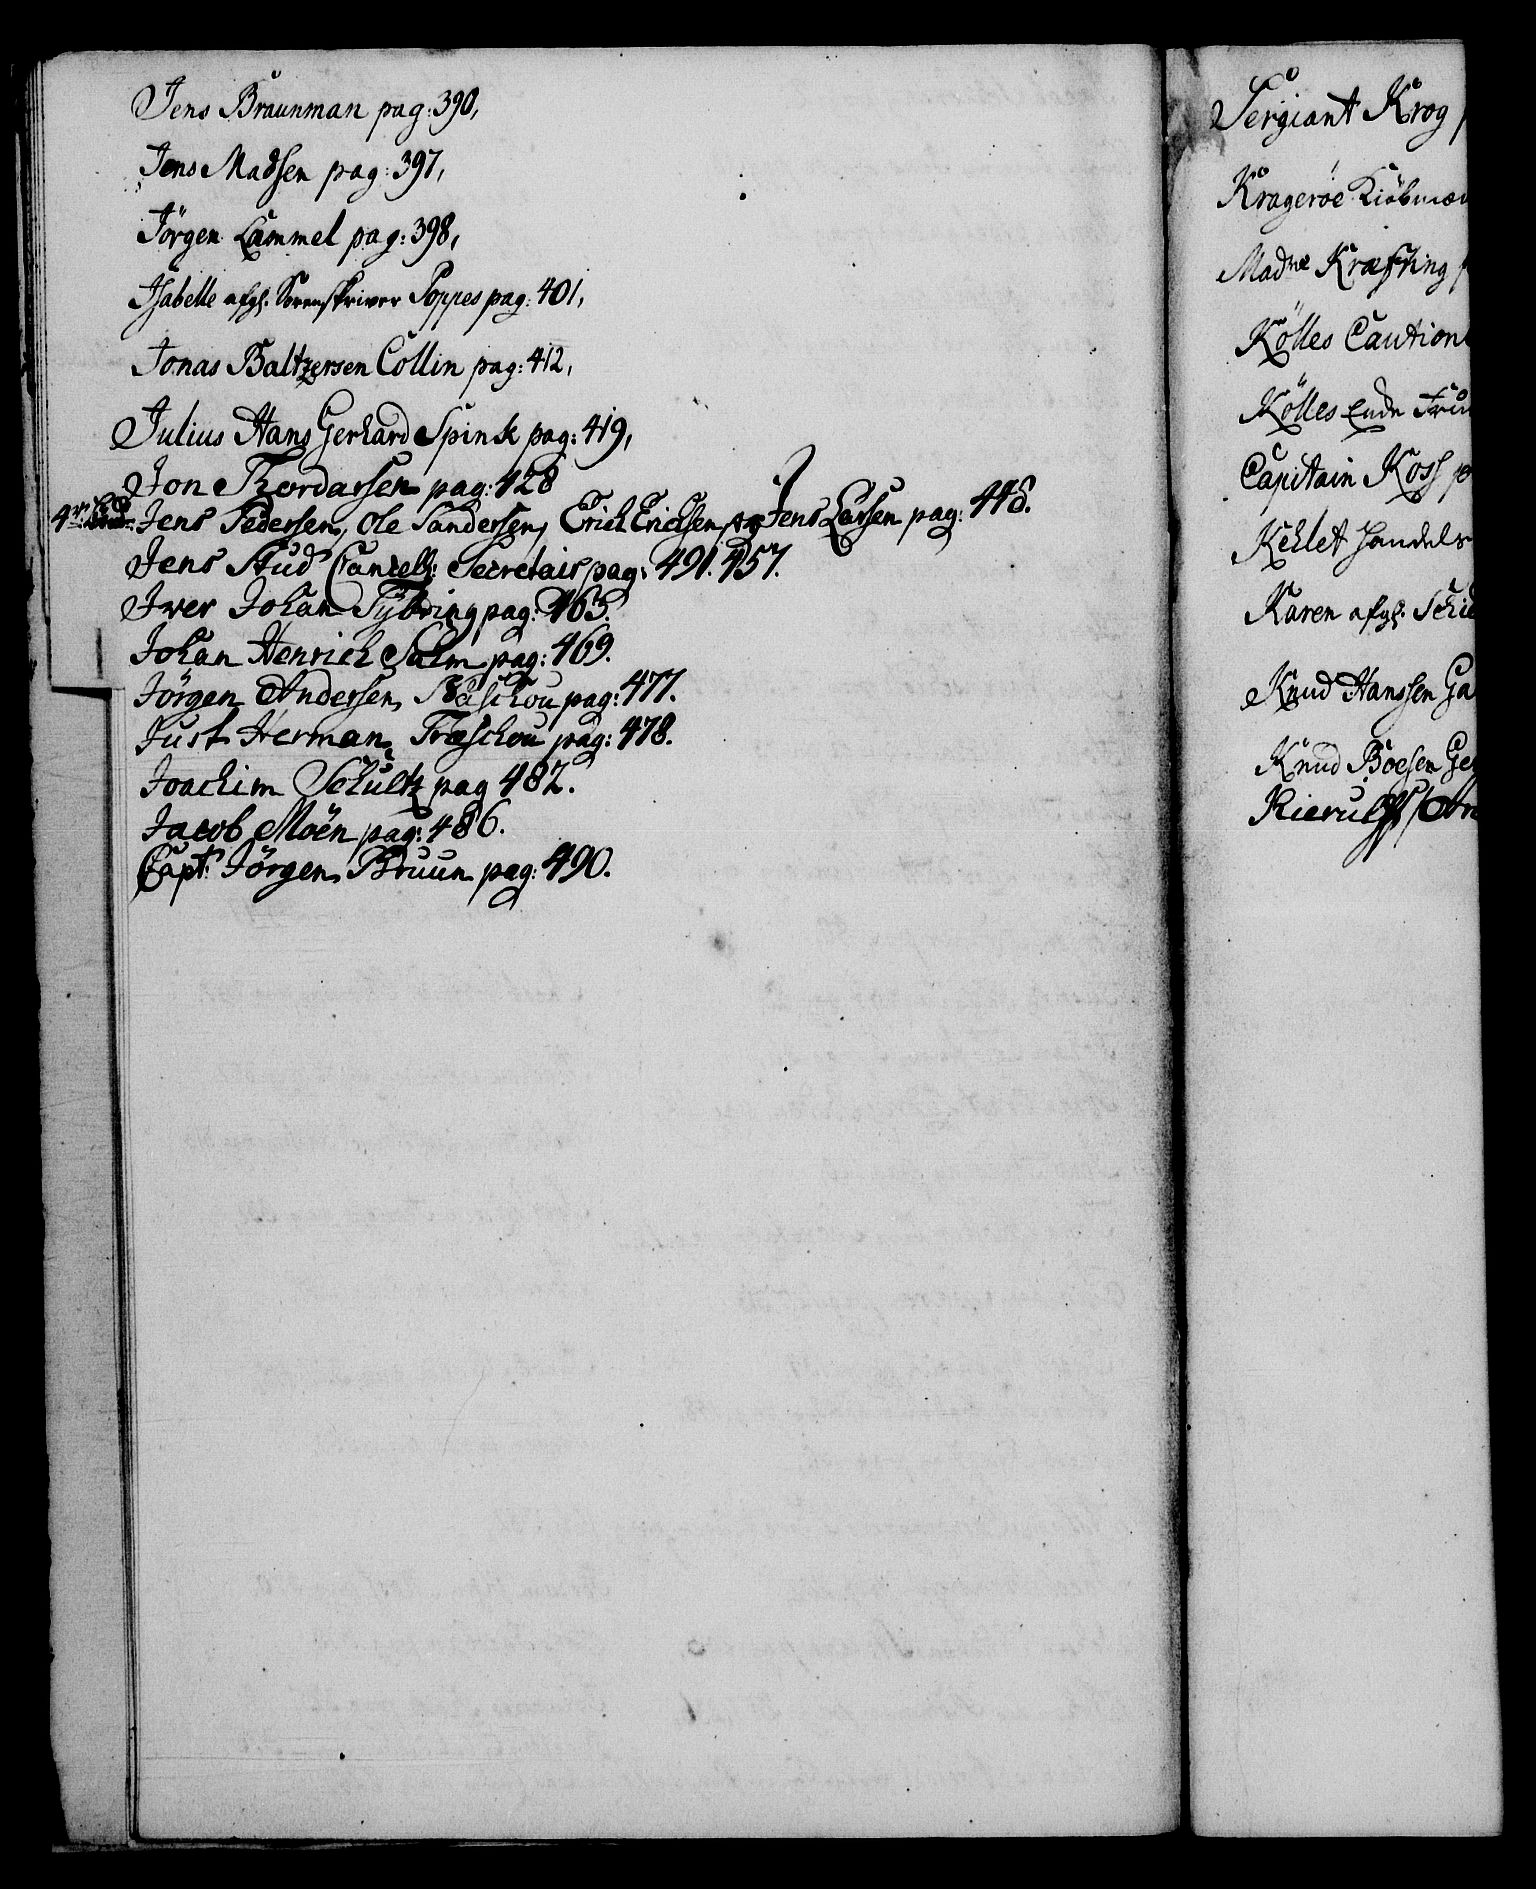 Jens Braunman pag: 390,
Jens Madsen pag: 397,
Jörgen Lammel pag: 398,
Isabelle afgl. Sorenskriver Poppes pag: 401,
Jonas Baltzersen Collin pag: 412,
Julius Hans Gerhard Spinck pag: 419,
Jon Thordarsen pag: 428
Jens Pedersen, Ole Sandersen, Erich Erichsen, og Jens Larsen pag: 448.
Jens Stud Cancell: Secretair pag: 491. 457.
Iver Johan Tybring pag: 463.
Johan Henrich Salm pag: 469.
Jörgen Andersen Næschou pag: 477.
Just Herman Træschou pag: 478.
Joachim Schultz pag 482.
Jacob Möen pag: 486.
Capt: Jörgen Bruun pag: 490.
Sergiant Krog
Kragerøe Kiöbmæn
Madme Kræfting
Kölles Caution
Kölles Enke
Capitain Koss p
Kehlet Handels
Karen afgl. Schie
Knud Hanssen Ga
Knud Boesen Ge
Kierulff